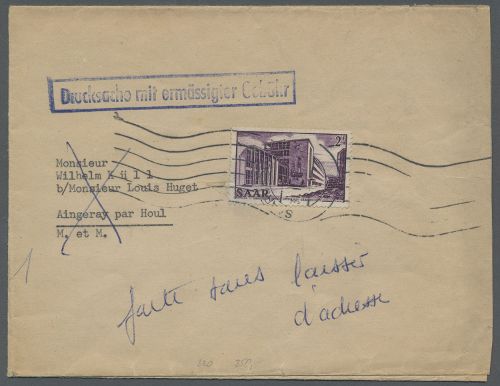 Drucksache mit ermässigter Gebühr
2F
SAAR
Monsieur
Wilhelm Küll
b/Monsieur Louis Huget
Aingeray par Houl
M. et M.
S
1
Partie sans laisser
d'adresse
350,-